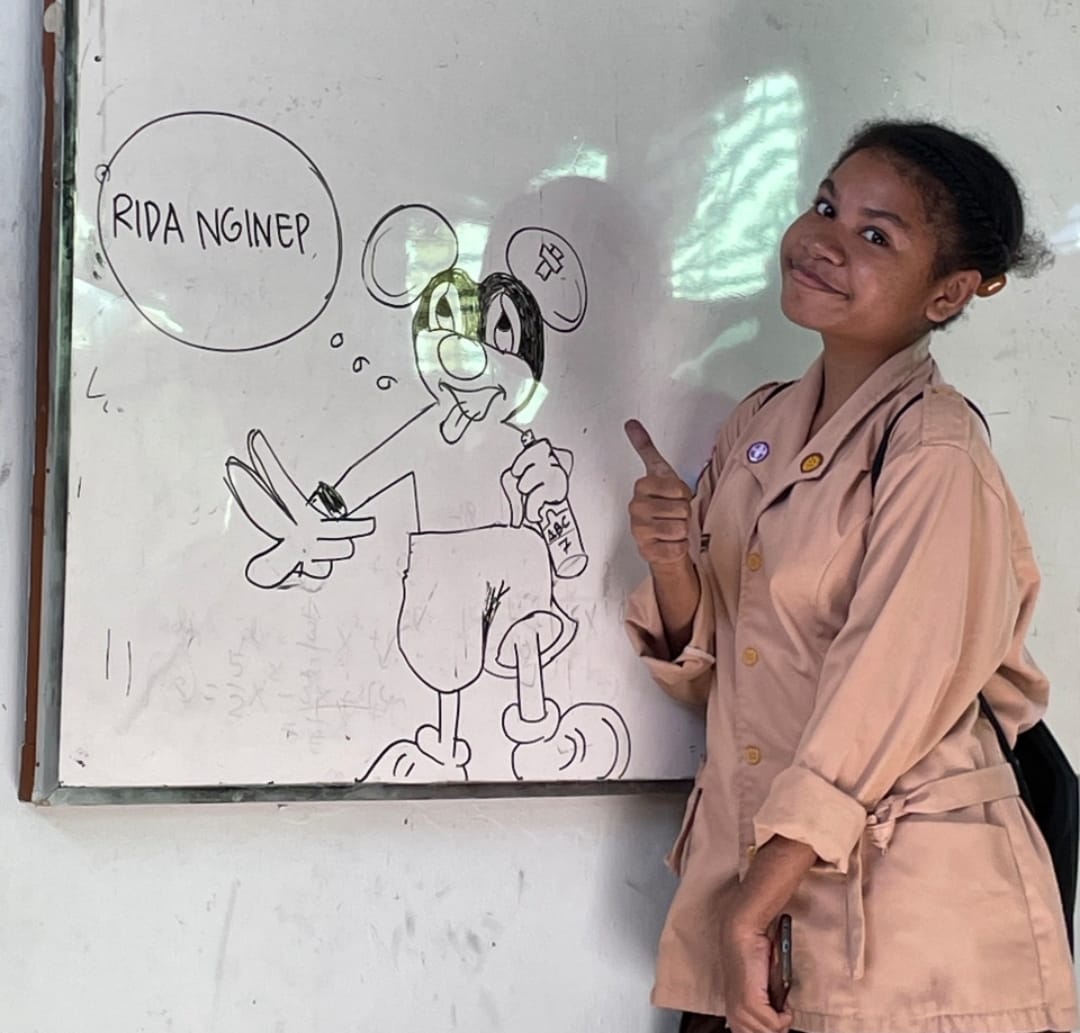 RIDA NGINEP
ABC
7